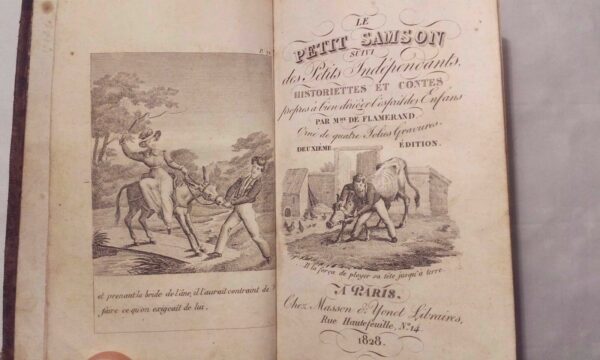 et prenant la bride de l'âne, il l'aurait contraint de
faire ce qu'on exigeait de lui.
LE
PETIT SAMSON
SUIVI
des Petits Indépendants,
HISTORIETTES ET CONTES
propres à bien diriger l'esprit des Enfans
PAR Mme DE FLAMERAND.
Orné de quatre Jolies Gravures.
DEUXIÈME ÉDITION.
Il la força de ployer sa tête jusqu'à terre.
A PARIS,
Chez Masson & Yonet Libraires,
Rue Hautefeuille, No. 14.
1828.